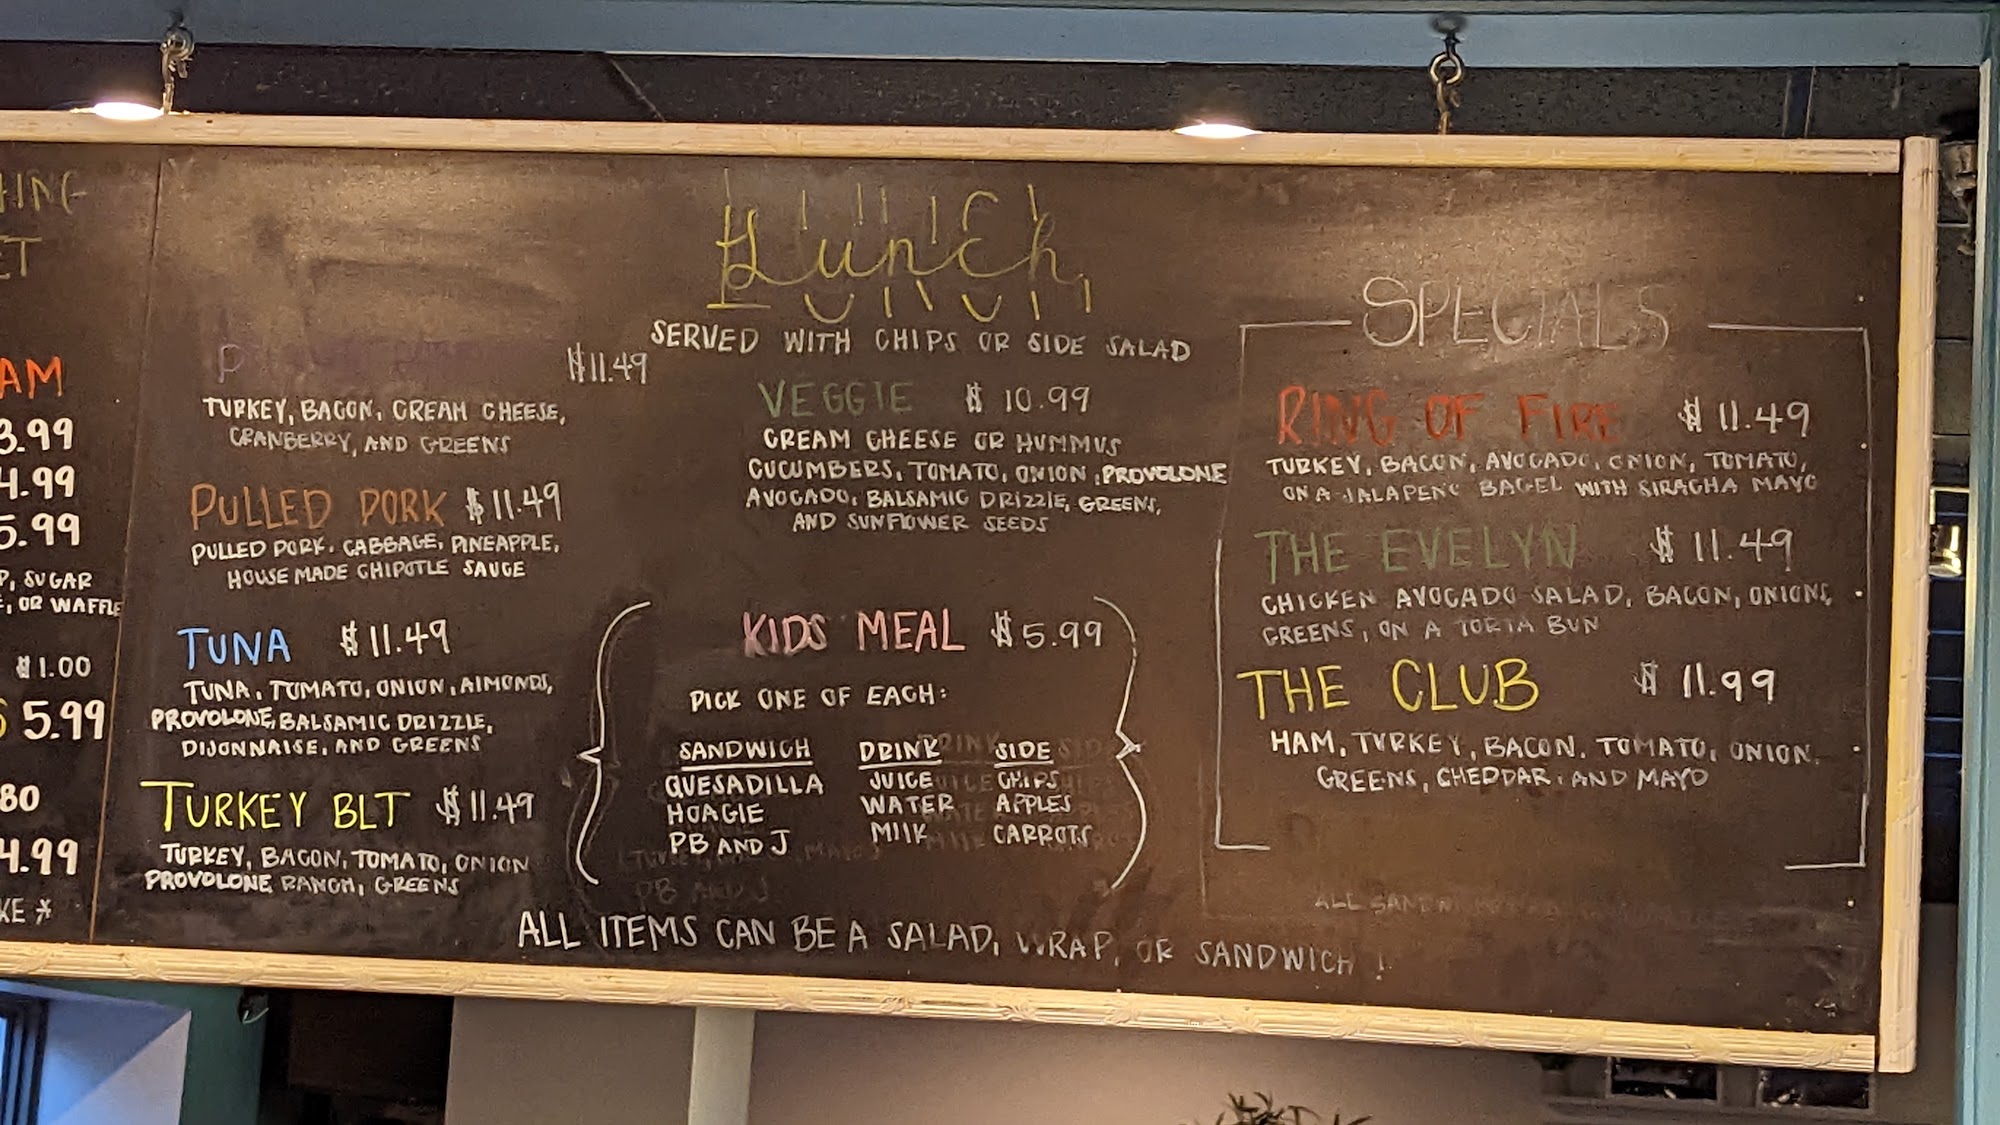 HING
ET
AM
3.99
4.99
5.99
P, SUGAR
E, OR WAFFLE
$1.00
5.99
80
4.99
KE *
$11.49
TURKEY, BACON, CREAM CHEESE,
CRANBERRY, AND GREENS
PULLED PORK $11.49
PULLED PORK, CABBAGE, PINEAPPLE,
HOUSE MADE CHIPOTLE SAUCE
TUNA $11.49
TUNA, TOMATO, ONION, ALMONDS,
PROVOLONE, BALSAMIC DRIZZLE,
DIJONNAISE, AND GREENS
TURKEY BLT $11.49
TURKEY, BACON, TOMATO, ONION
PROVOLONE RANCH, GREENS
Lunch
SERVED WITH CHIPS OR SIDE SALAD
VEGGIE $10.99
CREAM CHEESE OR HUMMUS
CUCUMBERS, TOMATO, ONION, PROVOLONE
AVOCADO, BALSAMIC DRIZZLE, GREENS,
AND SUNFLOWER SEEDS
KIDS MEAL $5.99
PICK ONE OF EACH:
SANDWICH DRINK SIDE
QUESADILLA JUICE CHIPS
HOAGIE WATER APPLES
PB AND J MILK CARROTS
SPECIALS
RING OF FIRE $11.49
TURKEY, BACON, AVOCADO, ONION, TOMATO,
ON A JALAPENO BAGEL WITH SIRACHA MAYO
THE EVELYN $11.49
CHICKEN AVOCADO SALAD, BACON, ONIONS,
GREENS, ON A TORTA BUN
THE CLUB $11.99
HAM, TURKEY, BACON, TOMATO, ONION,
GREENS, CHEDDAR, AND MAYO
ALL ITEMS CAN BE A SALAD, WRAP, OR SANDWICH!